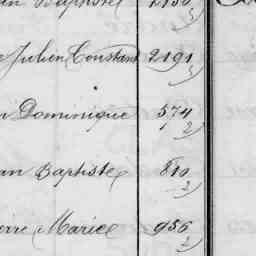 an Baptiste
Julien Constant 2191
5
Dominique 574
2
an Baptiste 810
2
erre Marie 956
2